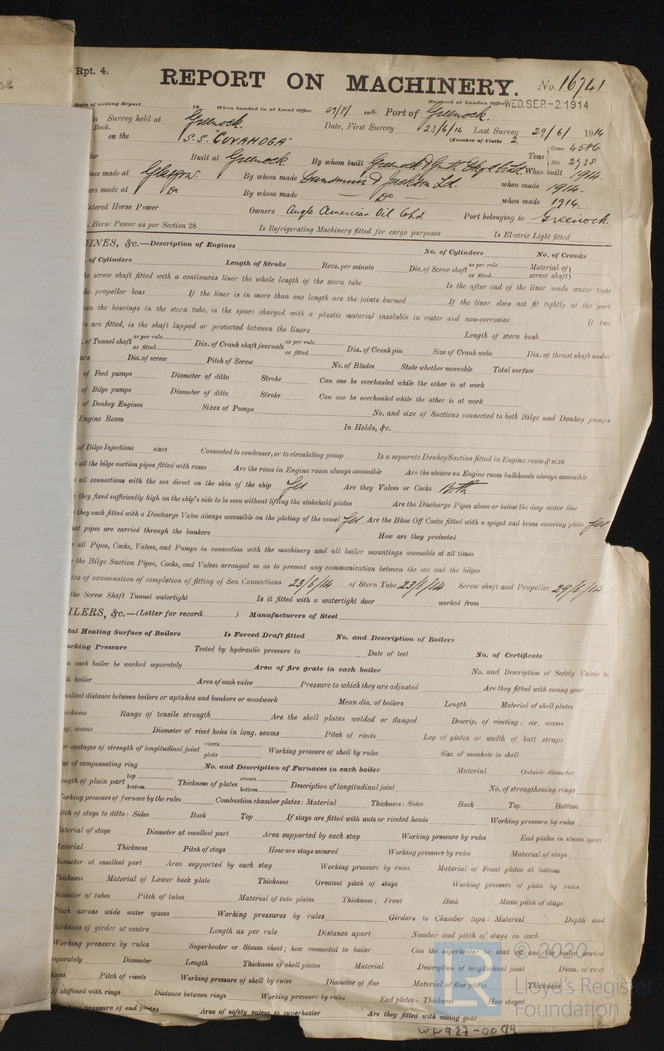 Rpt. 4.
REPORT ON MACHINERY.
No. 16741
Date of writing Report 19 When handed in at Local Office 29/8/ 1914 Port of Greenock.
Received at London Office WED. SEP. -2. 1914
in Survey held at Greenock. Date, First Survey 23/6/14 Last Survey 29/6/ 1914
Book. (Number of Visits 2
on the S.S. "CUYAHOGA" Tons Gross 4586
Net 2938
Built at Greenock. By whom built Greenock & Grnth Dkyd Co Ld. When built 1914.
nes made at Glasgow. By whom made Dunsmuir & Jackson Ld. when made 1914.
ers made at Do By whom made Do when made 1914.
stered Horse Power Owners Anglo American Oil Co Ld Port belonging to Greenock.
Horse Power as per Section 28 Is Refrigerating Machinery fitted for cargo purposes Is Electric Light fitted
INES, &c.—Description of Engines No. of Cylinders No. of Cranks
of Cylinders Length of Stroke Revs. per minute Dia. of Screw shaft as per rule as fitted Material of screw shaft
he screw shaft fitted with a continuous liner the whole length of the stern tube Is the after end of the liner made water tight
he propeller boss If the liner is in more than one length are the joints burned If the liner does not fit tightly at the part
een the bearings in the stern tube, is the space charged with a plastic material insoluble in water and non-corrosive If two
rs are fitted, is the shaft lapped or protected between the liners Length of stern bush
of Tunnel shaft as per rule as fitted Dia. of Crank shaft journals as per rule as fitted Dia. of Crank pin Size of Crank webs Dia. of thrust shaft under
ars Dia. of screw Pitch of Screw No. of Blades State whether moveable Total surface
of Feed pumps Diameter of ditto Stroke Can one be overhauled while the other is at work
of Bilge pumps Diameter of ditto Stroke Can one be overhauled while the other is at work
of Donkey Engines Sizes of Pumps No. and size of Suctions connected to both Bilge and Donkey pumps
Engine Room In Holds, &c.
of Bilge Injections sizes Connected to condenser, or to circulating pump Is a separate Donkey Suction fitted in Engine room & size
all the bilge suction pipes fitted with roses Are the roses in Engine room always accessible Are the sluices on Engine room bulkheads always accessible
all connections with the sea direct on the skin of the ship Yes Are they Valves or Cocks Both
they fixed sufficiently high on the ship's side to be seen without lifting the stokehold plates Are the Discharge Pipes above or below the deep water line
they each fitted with a Discharge Valve always accessible on the plating of the vessel Yes Are the Blow Off Cocks fitted with a spigot and brass covering plate Yes
hat pipes are carried through the bunkers How are they protected
all Pipes, Cocks, Valves, and Pumps in connection with the machinery and all boiler mountings accessible at all times
the Bilge Suction Pipes, Cocks, and Valves arranged so as to prevent any communication between the sea and the bilges
tes of examination of completion of fitting of Sea Connections 23/6/14 of Stern Tube 23/6/14 Screw shaft and Propeller 29/6/14
the Screw Shaft Tunnel watertight Is it fitted with a watertight door worked from
ILERS, &c.—(Letter for record ) Manufacturers of Steel
tal Heating Surface of Boilers Is Forced Draft fitted No. and Description of Boilers
orking Pressure Tested by hydraulic pressure to Date of test No. of Certificate
n each boiler be worked separately Area of fire grate in each boiler No. and Description of Safety Valves to
h boiler Area of each valve Pressure to which they are adjusted Are they fitted with easing gear
allest distance between boilers or uptakes and bunkers or woodwork Mean dia. of boilers Length Material of shell plates
hickness Range of tensile strength Are the shell plates welded or flanged Descrip. of riveting: cir. seams
ng. seams Diameter of rivet holes in long. seams Pitch of rivets Lap of plates or width of butt straps
er centages of strength of longitudinal joint rivets plate Working pressure of shell by rules Size of manhole in shell
ize of compensating ring No. and Description of Furnaces in each boiler Material Outside diameter
ength of plain part top bottom Thickness of plates crown bottom Description of longitudinal joint No. of strengthening rings
Working pressure of furnace by the rules Combustion chamber plates: Material Thickness: Sides Back Top Bottom
itch of stays to ditto: Sides Back Top If stays are fitted with nuts or riveted heads Working pressure by rules
aterial of stays Diameter at smallest part Area supported by each stay Working pressure by rules End plates in steam space
aterial Thickness Pitch of stays How are stays secured Working pressure by rules Material of stays
iameter at smallest part Area supported by each stay Working pressure by rules Material of Front plates at bottom
Thickness Material of Lower back plate Thickness Greatest pitch of stays Working pressure of plate by rules
iameter of tubes Pitch of tubes Material of tube plates Thickness: Front Back Mean pitch of stays
Pitch across wide water spaces Working pressures by rules Girders to Chamber tops: Material Depth and
hickness of girder at centre Length as per rule Distance apart Number and pitch of stays in each
Working pressure by rules Superheater or Steam chest; how connected to boiler Can the superheater be shut off and the boiler worked
eparately Diameter Length Thickness of shell plates Material Description of longitudinal joint Diam. of rivet
holes Pitch of rivets Working pressure of shell by rules Diameter of flue Material of flue plates Thickness
If stiffened with rings Distance between rings Working pressure by rules End plates: Thickness How stayed
Working pressure of end plates Area of safety valves to superheater Are they fitted with easing gear
© 2020
Lloyd's Register
Foundation